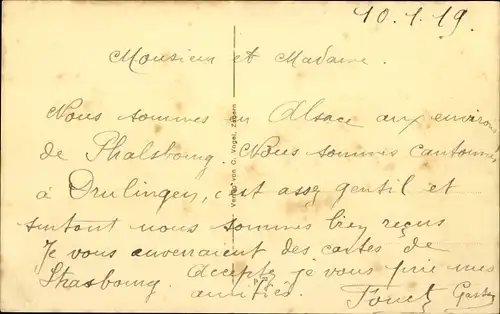 10.1.19.
Monsieur et Madame.
Nous sommes en Alsace aux environs
de Phalsbourg. Nous sommes cantonnés
à Drulingen, c'est assez gentil et
surtout nous sommes bien reçus
Je vous enverraient des cartes de
Strasbourg. Acceptez je vous prie mes
amitiés.
Verlag von C. Vogel, Zabern